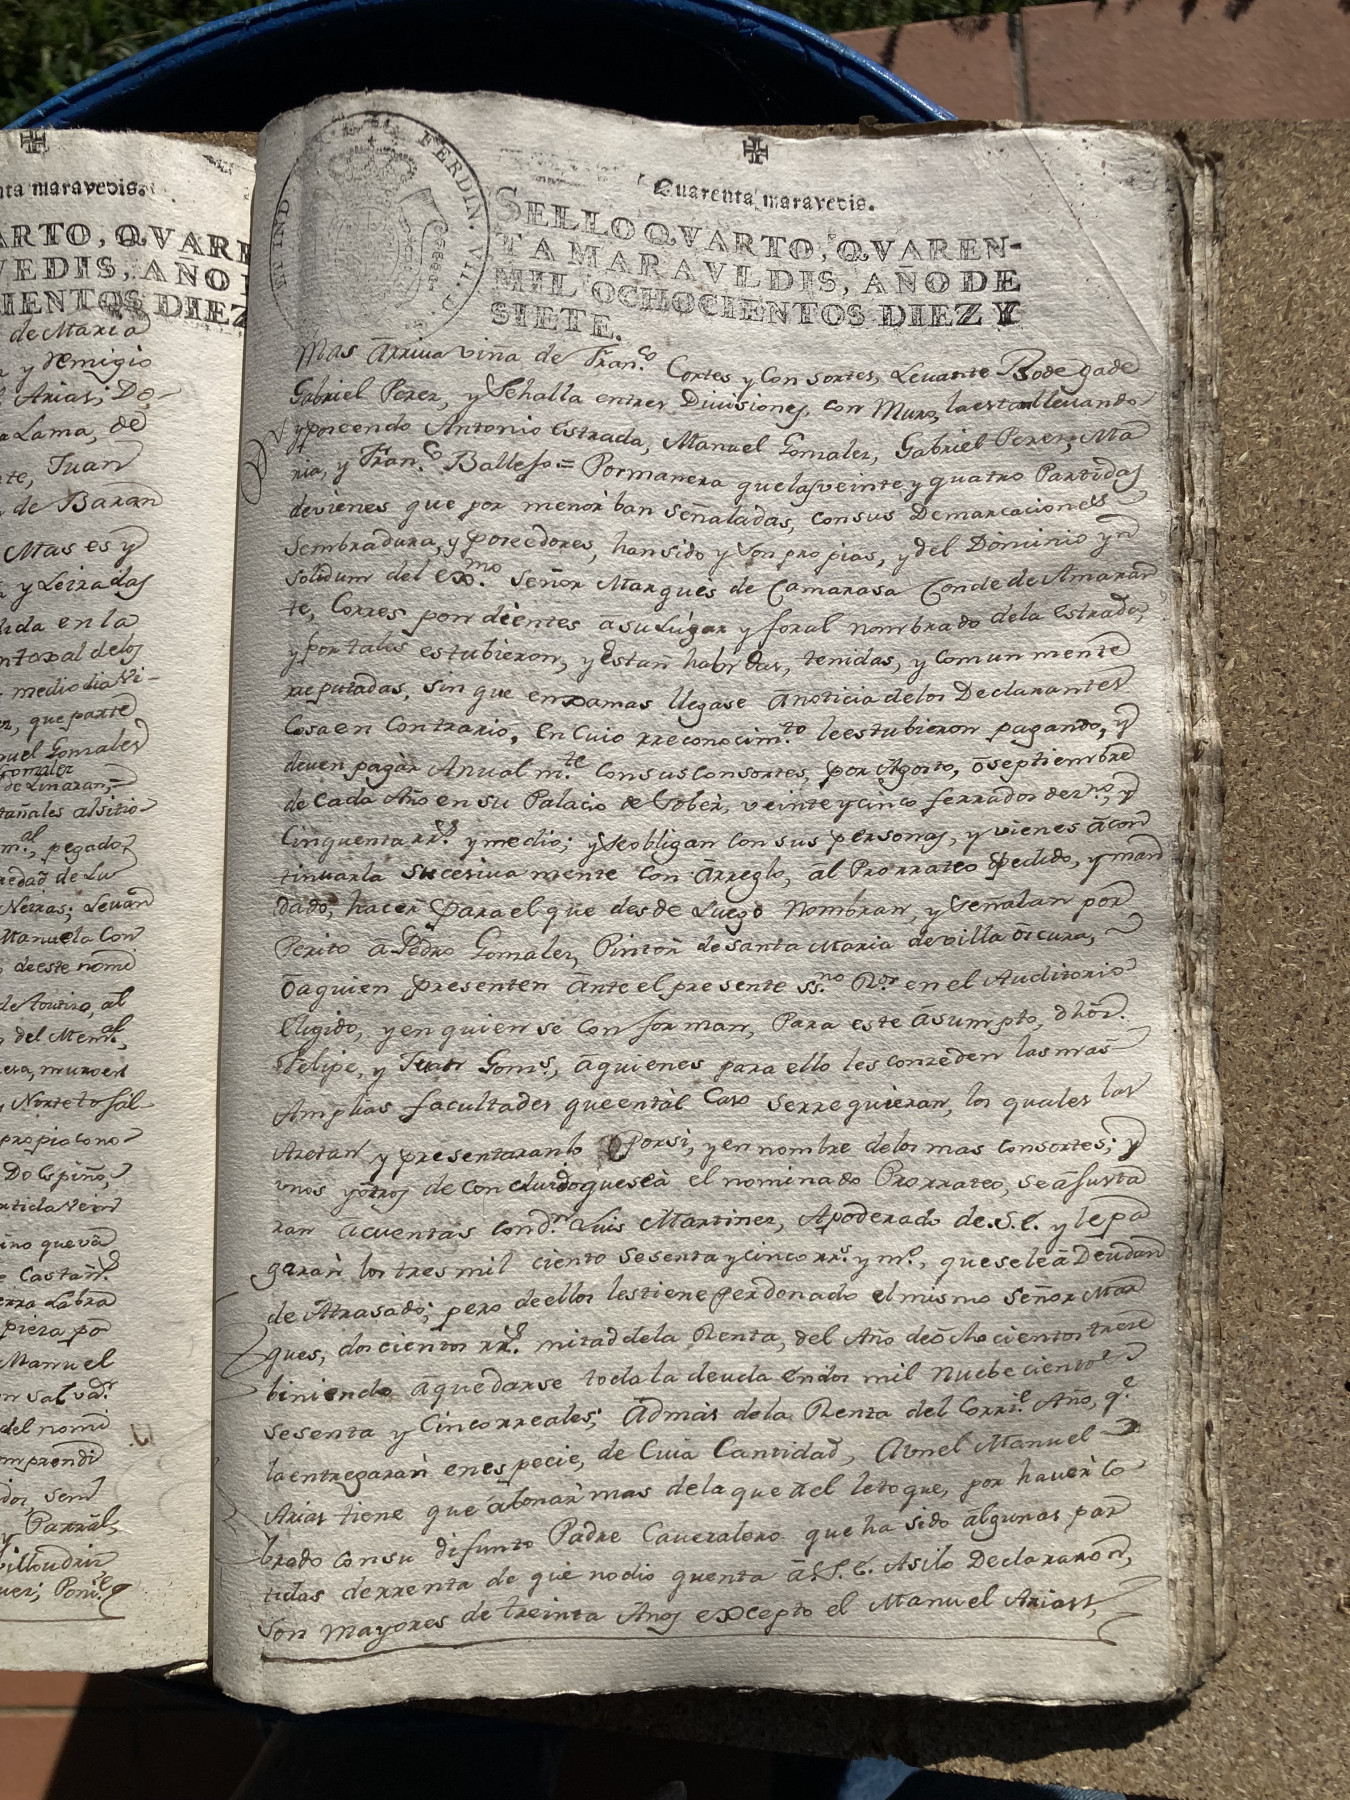 nta maravedis.
ARTO, QVARE
VEDIS, AÑO
IENTOS DIEZ
de Maria
y Remigio
Arias, Do,
a Lama, de
te, Juan
de Baran
Mas es y
y Leiradas
dida en la
ntoxal delos
medio dia Ni-
r, que parte
nuel Gonzalez
Gonzalez
de Linaran,=
tañales alsitio
m.al, pegado,
redad de Lu
Neiras; Levan
Manuela Con
, deeste nomb
de Toutiro, al
del Men.l,
era, muro en
Norte to sal
propio cono
Do Espiño,
rtida Vein
ino que va
e Castañ.s
erra Labra
pieza po
Manuel
on salvad.r
del nomi
omprendi
dor, sem
y Parral,
villoudriz
uer; Poni.te
ET IND FERDIN. VII. D. G.
Quarenta maravedis.
SELLO QVARTO, QVAREN-
TA MARAVEDIS, AÑO DE
MIL OCHOCIENTOS DIEZ Y
SIETE.
Mas ārriva viña de Fran.co Cortes y Consortes, Levante Bodega de
Gabriel Perez, y Sehalla entres Divisiones, con Muro, la estan llevando
y poseendo Antonio Estrada, Manuel Gonzalez, Gabriel Perez, Ma
ria, y Fran.co Ballesº = Por manera que las veinte y quatro Partidas
devienes que por menor ban señaladas, con sus Demarcaciones
Sembradura, y poseedores, han sido y son propias, y del Dominio yn
solidum del ex.mo Señor Marques de Camarasa Conde de Amaran
te, Corres pondientes a su Lugar y foral nombrado dela estrada,
y por tales estubieron, y están habidas, tenidas, y comun mente
reputadas, sin que en xamas llegase ā noticia delos Declarantes
Cosa en Contrario, En Cuio rreconocim.to le estubieron pagando, y
deven pagàr Anual m.te con sus consortes, por Agosto, ō septiembre
de Cada Año en su Palacio de Tober, veinte y cinco ferrados de z.no, y
Cinquenta rr.s y medio; y se obligan con sus personas, y vienes ā con
tinuarla sucesiva mente con Arreglo, āl Prorrateo pedido, y man
dado, hacer para el que des de Luego Nombran, y señalan por
Perito a Pedro Gonzalez, Pintor de santa Maria de villa ōscura,
ōa quien presenten ānte el presente ss.no R.or en el Auditorio
Eligido, y en quien se con forman, Para este āsumpto, d hōr.
Felipe, y Juan Gom.s, ā quienes para ello les conzeden las mas
Amplias facultades que en tàl Caso se rre quieran, los quales las
Azetan y presentaranlo Por si, y en nombre delos mas consortes; y
vnos y ōtros de con cluido que seà el nominado Prorrateo, se ā justa
ran ā cuentas con d.n Luis Martinez, Apoderado de S. E. y le pa
garàn los tres mil ciento sesenta y cinco rr.s y m.o, que se le ā Deudan
de Atrasado; pero de ellos les tiene perdonado el mismo Señor Mar
ques, dos cientos rr.s mitad dela Renta, del Año de ōchocientos trece
biniendo a quedarse toda la deuda en dos mil nuebe cientos
sesenta y Cinco rreales; Ādmás dela Renta del Corri.te Año, q.e
la entregaràn en es pecie, de Cuia Cantidad, Aunel Manuel
Arias tiene que ābonàr mas de la que ā el le toque, por haver Co
brado con su difunto Padre Cavezalero que ha sido ālgunas par
tidas de rrenta de que no dio quenta ā S. E. Asilo Declararon,
son mayores de treinta Años excepto el Manuel Arias,